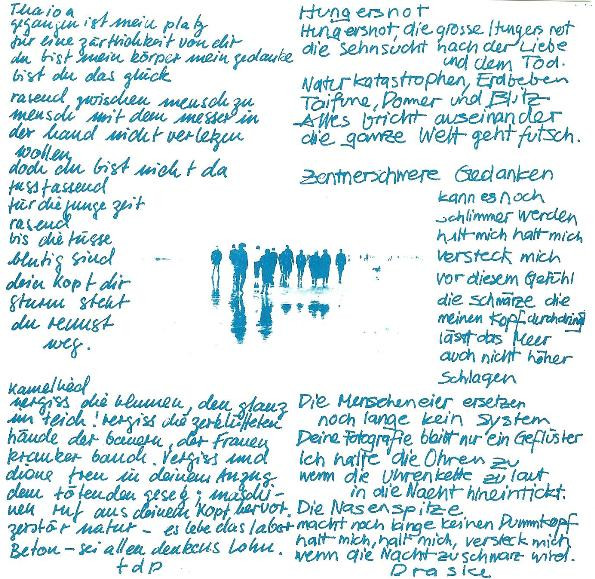 Thaiga
gegangen ist mein platz
für eine zärtlichkeit von dir
du bist mein körper mein gedanke
bist du das glück
rasend zwischen mensch zu
mensch mit dem messer in
der hand nicht verletzen
wollen
doch du bist nicht da
fussfassend
für die junge zeit
rasend
bis die füsse
blutig sind
dein kopf dir
sturm steht
du rennst
weg.
Kamellied
vergiss die blumen, den glanz
im teich! vergiss die zerklüfteten
hände der bauern, der frauen
kranker bauch. Vergiss und
diene treu in deinem Anzug.
dem tötenden gesetz; maschi-
nen ruf aus deinem Kopf hervor.
zerstör natur - es lebe das labor
Beton - sei allen denkens Lohn.
tdp
Hungersnot
Hungersnot, die grosse Hungers not
die Sehnsucht nach der Liebe
und dem Tod.
Natur Katastrophen, Erdbeben
Taifune, Donner und Blitz
Alles bricht auseinander
die ganze Welt geht futsch.
Zentnerschwere Gedanken
kann es noch
schlimmer werden
halt mich halt mich
versteck mich
vor diesem Gefühl
die schwärze die
meinen Kopf durchdring
lässt das Meer
auch nicht höher
schlagen
Die Menscheneier ersetzen
noch lange kein System
Deine Fotografie bleibt nur ein Geflüster
Ich halte die Ohren zu
wenn die Uhrenkette zu laut
in die Nacht hineintickt.
Die Nasenspitze
macht noch lange keinen Dummkopf
halt mich, halt mich, versteck mich
wenn die Nacht zu schwarz wird.